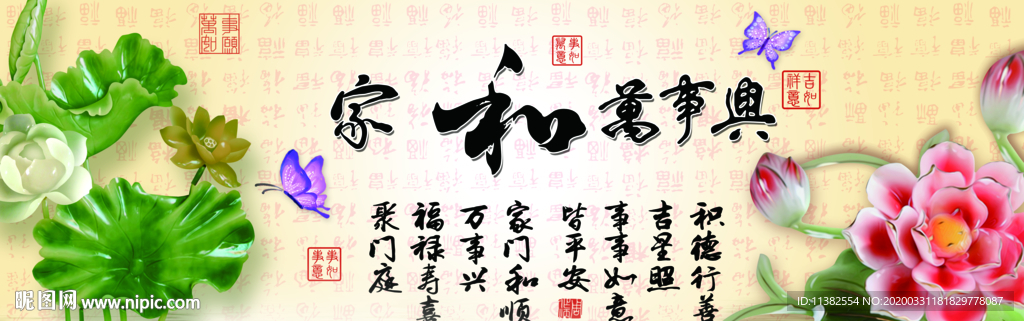 家和萬事興
积德行善
吉星照
事事如意
皆平安
家门和顺
万事兴
福禄寿喜
聚门庭
吉如祥意
昵图网 www.nipic.com
ID:11382554 NO:20200331181829778087